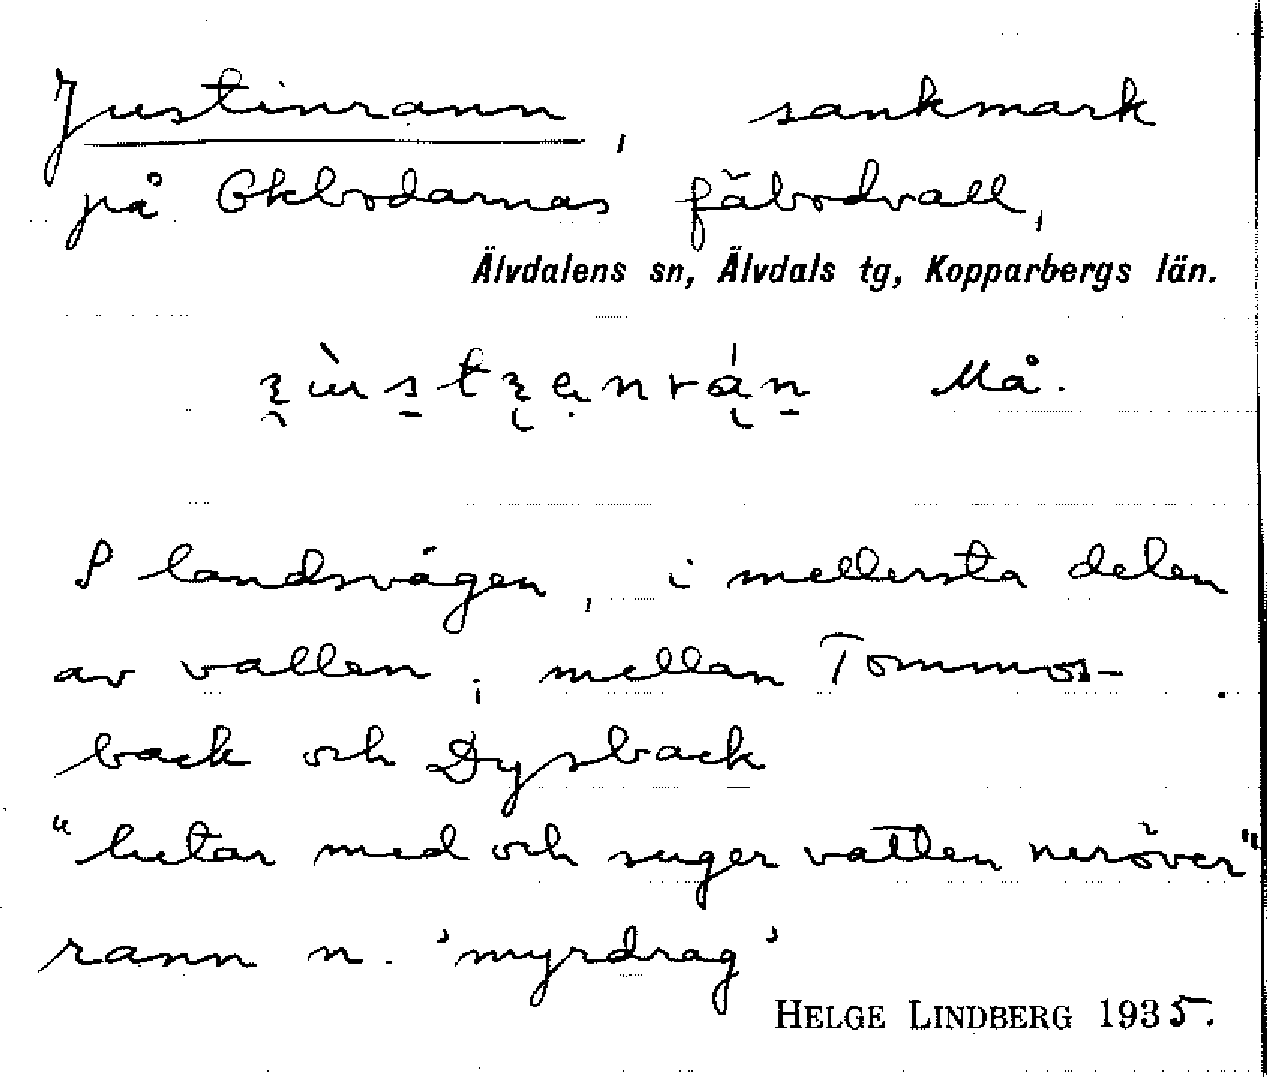 Justinrann, sankmark
på Okbodarnas fäbodvall,
Älvdalens sn, Älvdals tg, Kopparbergs län.
Må.
S landsvägen, i mellersta delen
av vallen; mellan Tommos-
back och Dysback
"lutar med och suger vatten neröver"
rann n. 'myrdrag'
HELGE LINDBERG 1935.